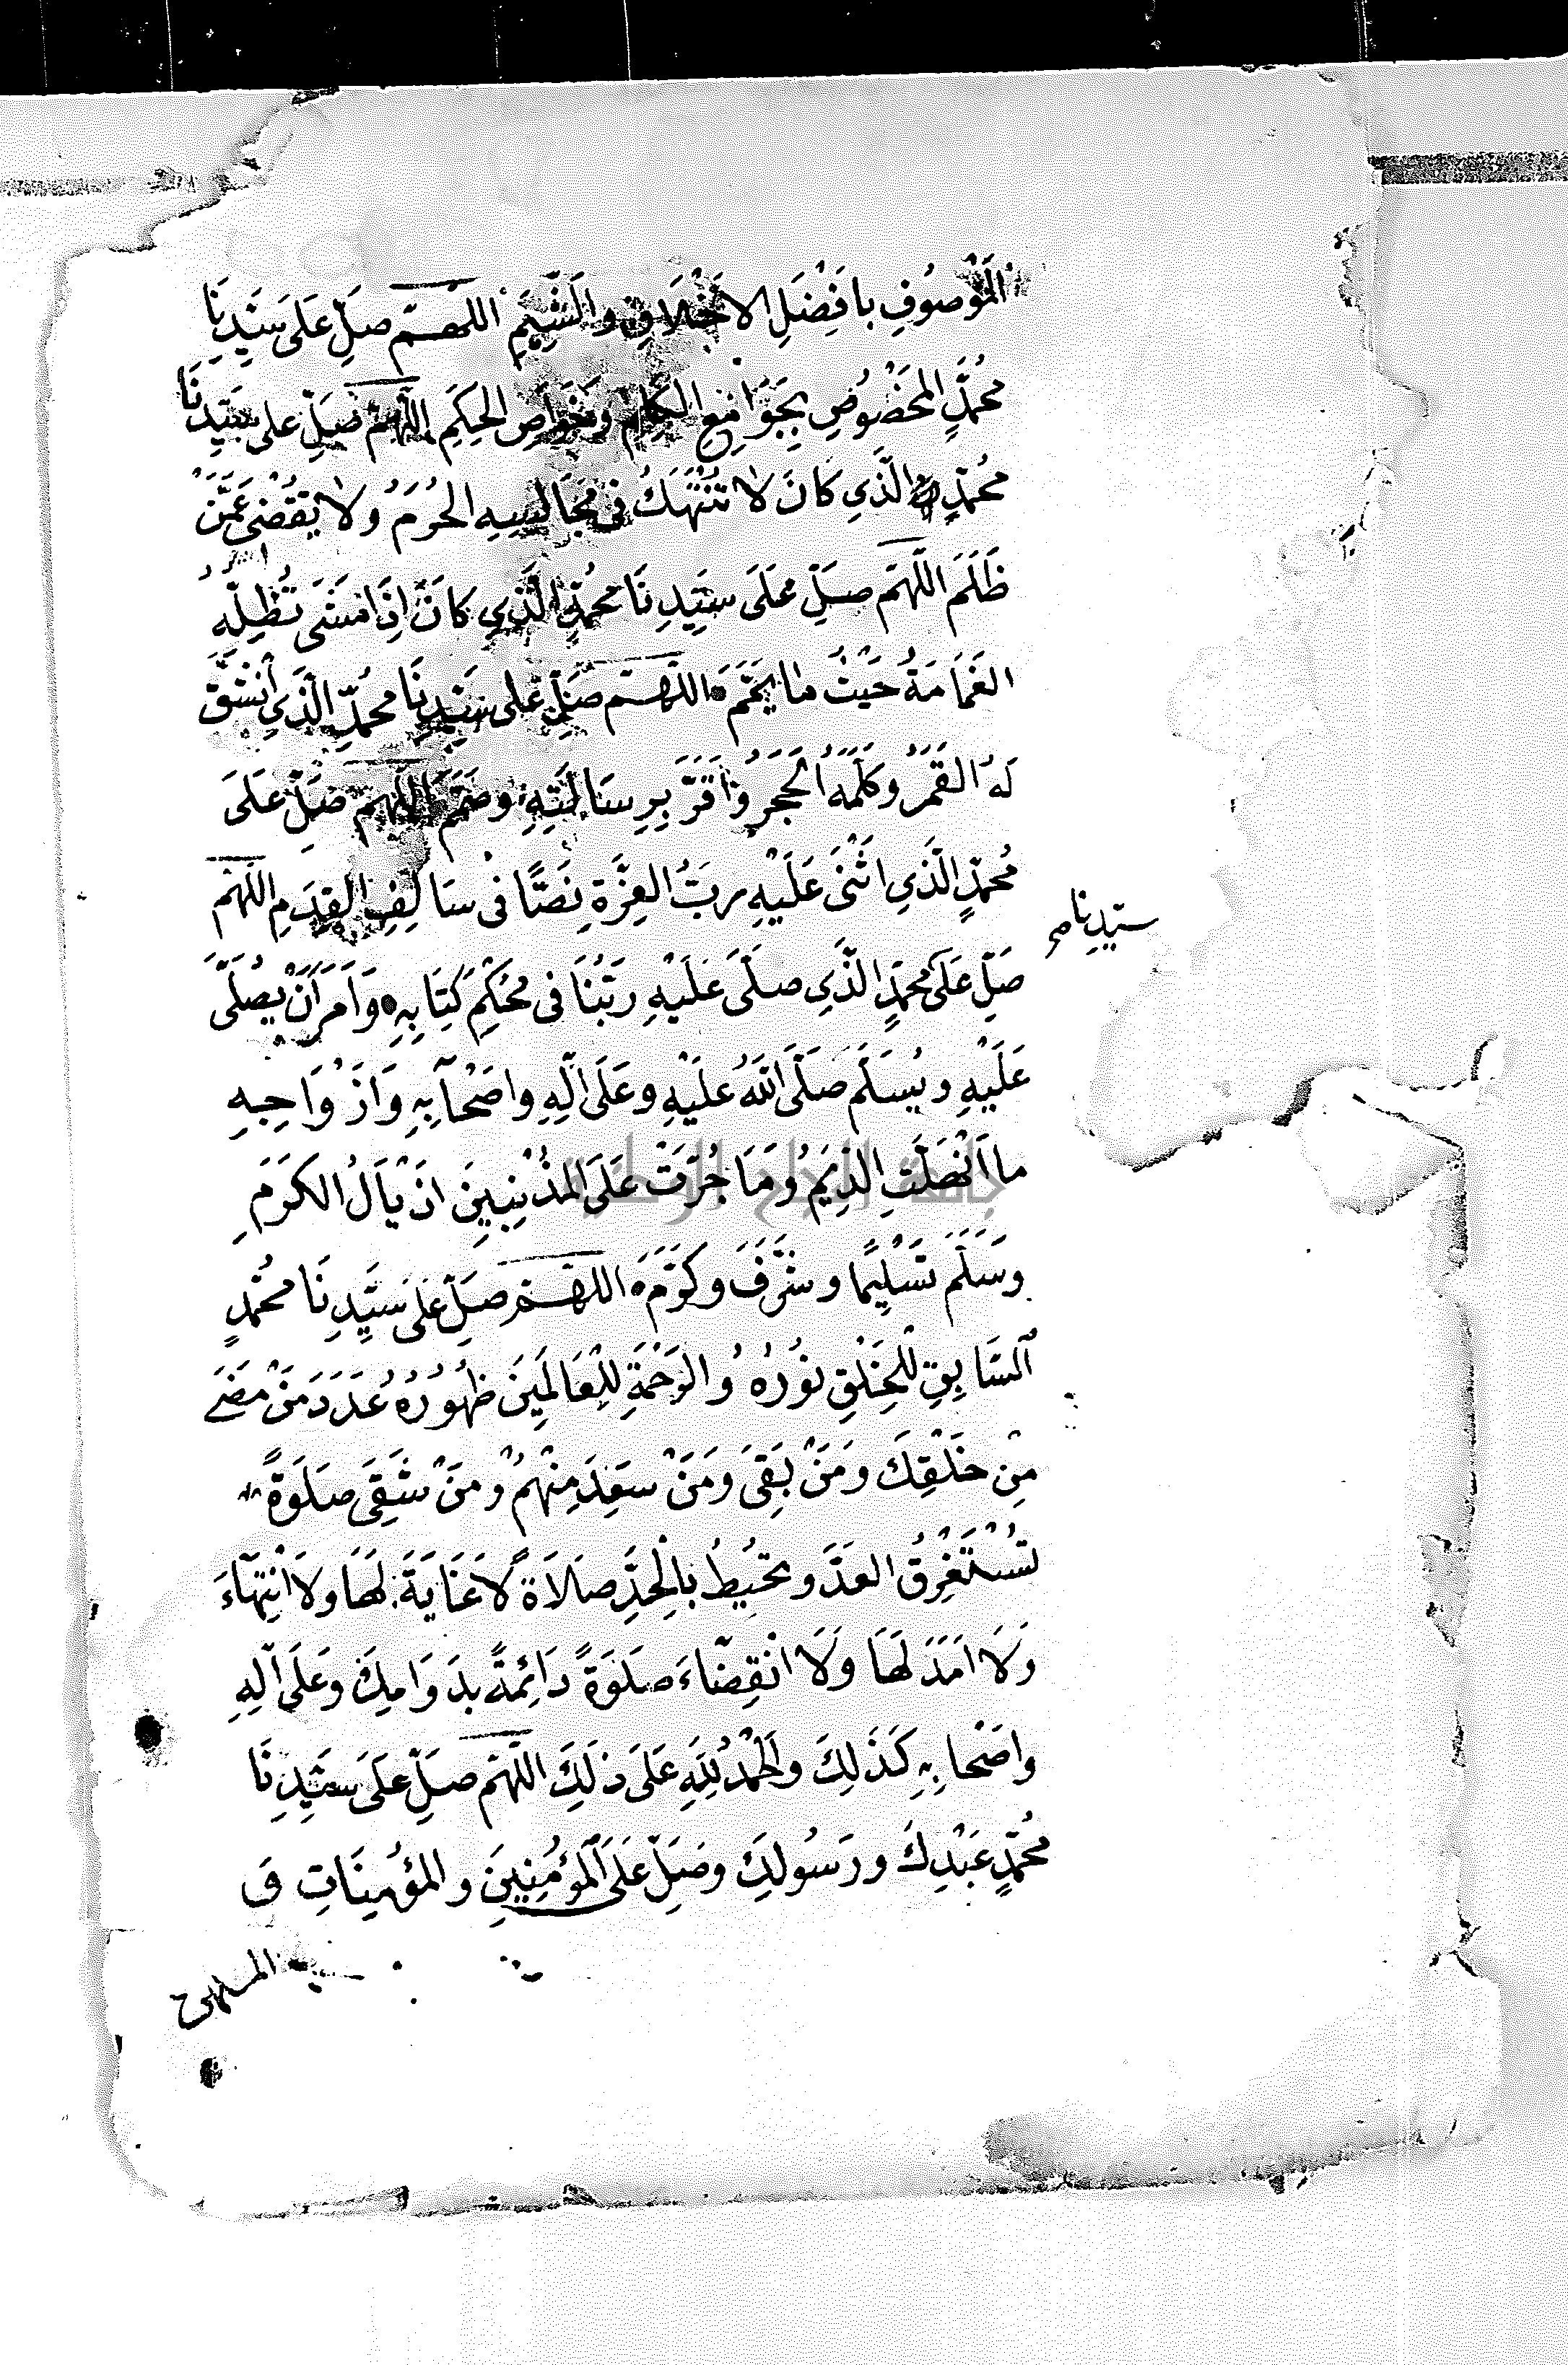 المَوْصُوفِ بافْضَلِ الاخْلَاقِ والشِّيَمِ اللهم صَلِّ عَلَى سَيِّدِنَا
مُحَمَّدٍ المَخْصُوصِ بِجَوَامِعِ الكَلِمِ وَخَوَاصِ الحِكَمِ اللهم صَلِّ على سَيِّدِنَا
مُحَمَّدٍ الَّذِي كَانَ لَا تُنْتَهَكُ فى مَجَالِسِهِ الحُرَمُ وَلَا يُغْضِى عَمَّنْ
ظَلَمَ اللّهُمَّ صَلِّ عَلَى سَيِّدِنَا مُحَمَّدٍ الَّذِي كَانَ اِذَا مَشَى تُظِلُّهُ
الغَمَامَةُ حَيْثُ مَا يَمَّمَ اللّهم صَلِّ عَلى سَيِّدِنَا مُحَمَّدٍ الَّذِي أنْشَقَّ
لَهُ القَمَرُ وَكَلَّمَهُ الحَجَرُ وَاَقَرَّ بِرِسَالَتِهِ وَصَمَّمَ اللّهم صَلِّ عَلَى
مُحَمَّدٍ الَّذِي اَثْنَى عَلَيْهِ رَبُّ العِزَّةِ نَصًّا فى سَالِفِ القِدَمِ اللّهُمَّ
سيّدِنا صح
صَلِّ عَلَى مُحَمَّدٍ الَّذِي صَلَّى عَلَيْهِ رَبُّنَا فى مُحْكَمِ كِتَابِهِ وَاَمَرَ اَنْ يُصَلَّى
عَلَيْهِ ويُسَلَّمَ صَلَّى اللهُ عَلَيْهِ وعَلَى آلِهِ واصْحَابِهِ وَاَزْوَاجِهِ
ما انْهَلَّتِ الدِّيَمُ وَمَا جُرَّتْ عَلَى المُذْنِبِينَ اذْيَالُ الكَرَمِ
وسَلَّمَ تَسْلِيمًا وشَرَّفَ وكَرَّمَ اللهم صَلِّ عَلى سَيِّدِنَا مُحَمَّدٍ
السَّابِقِ لِلْخَلْقِ نُورُهُ والرَّحْمَةِ لِلْعَالَمِينَ ظُهُورُهُ عَدَدَ مَنْ مَضَى
مِنْ خَلْقِكَ وَمَنْ بَقِىَ وَمَنْ سَعِدَ مِنْهُمْ وَمَنْ شَقِىَ صَلَوةً
تَسْتَغْرِقُ العَدَّ وتحُيطُ بِالْحَدِّ صَلاَةً لَا غَايَةَ لَهَا وَلا انْتِهَاءَ
وَلَا اَمَدَ لَهَا وَلَا انْقِضَاءَ صَلَوةً دَائِمَةً بِدَوَامِكَ وَعَلَى آلِهِ
واصْحابِهِ كَذَلِكَ والحَمْدُ لِلّهِ عَلَى ذَلِكَ اللّهُمَّ صَلِّ عَلَى سَيِّدِنَا
مُحَمَّدٍ عَبْدِكَ ورَسُولِكَ وصَلِّ عَلَى المُؤْمِنِينَ والمؤْمِنَاتِ وَ